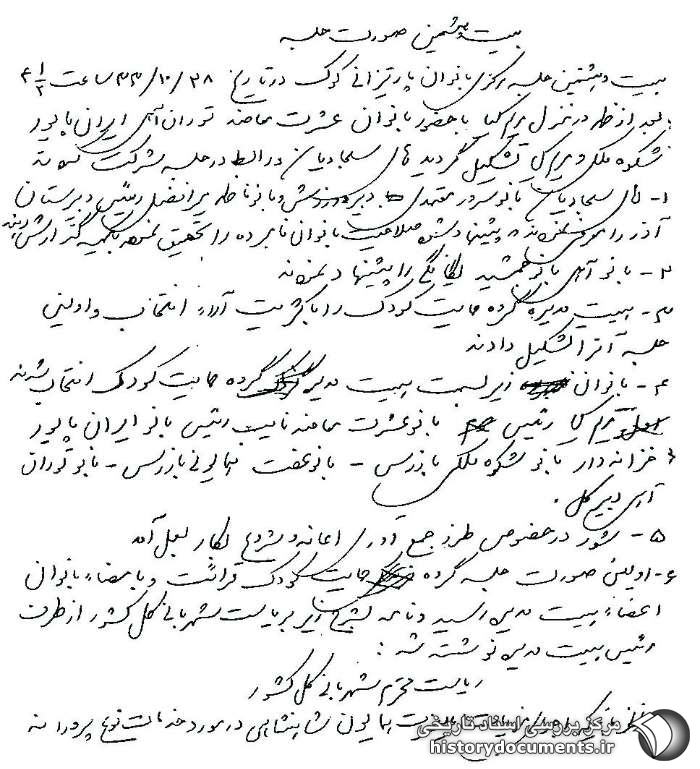 بیست و هشتمین صورت جلسه
بیست و هشتمین جلسه مرکزی بانوان پارتیزانی کوک در تاریخ ۲۸/۱۰/۳۳ ساعت ۴ ۱/۲
بعد از ظهر در منزل مریم کیا با حضور بانوان عشرت ممانی توران آهی ایران پایور
شکوه ملکی و مریم کیا تشکیل گردید در جلسه شرکت
۱- بانو سرور معتمدی دبیر ورزش و بانو ناظمی رئیس دبیرستان
آذر را معرفی نمودند و پیشنهاد شد صلاحیت بانوان نامبرده را تحقیق نموده گزارش دهند
۲- بانو آهی بانو جمشید را پیشنهاد نمودند
۳- هیئت مدیره گروه حمایت کودک را با اکثریت آراء انتخاب و اولین
جلسه آنرا تشکیل دادند
۴- بانوان زیر بسمت هیئت مدیره گروه حمایت کودک انتخاب شدند
مریم کیا رئیس بانو عشرت نایب رئیس بانو ایران پایور
خزانه دار بانو شکوه ملکی بازرس - بانو عفت بازرس - بانو توران
آهی دبیر کل.
۵- شور در خصوص طرز جمع آوری اعانه و شروع بکار بعمل آمد
۶- اولین صورت جلسه گروه حمایت کودک قرائت و بامضاء بانوان
اعضاء هیئت مدیره رسید و نامه بشرح زیر بریاست شهربانی کل کشور از طرف
رئیس هیئت مدیره نوشته شد :
ریاست محترم شهربانی کل کشور
همایون شاهنشاهی در مورد خدمات نوع پرورانه
مرکز بررسی اسناد تاریخی
historydocuments.ir